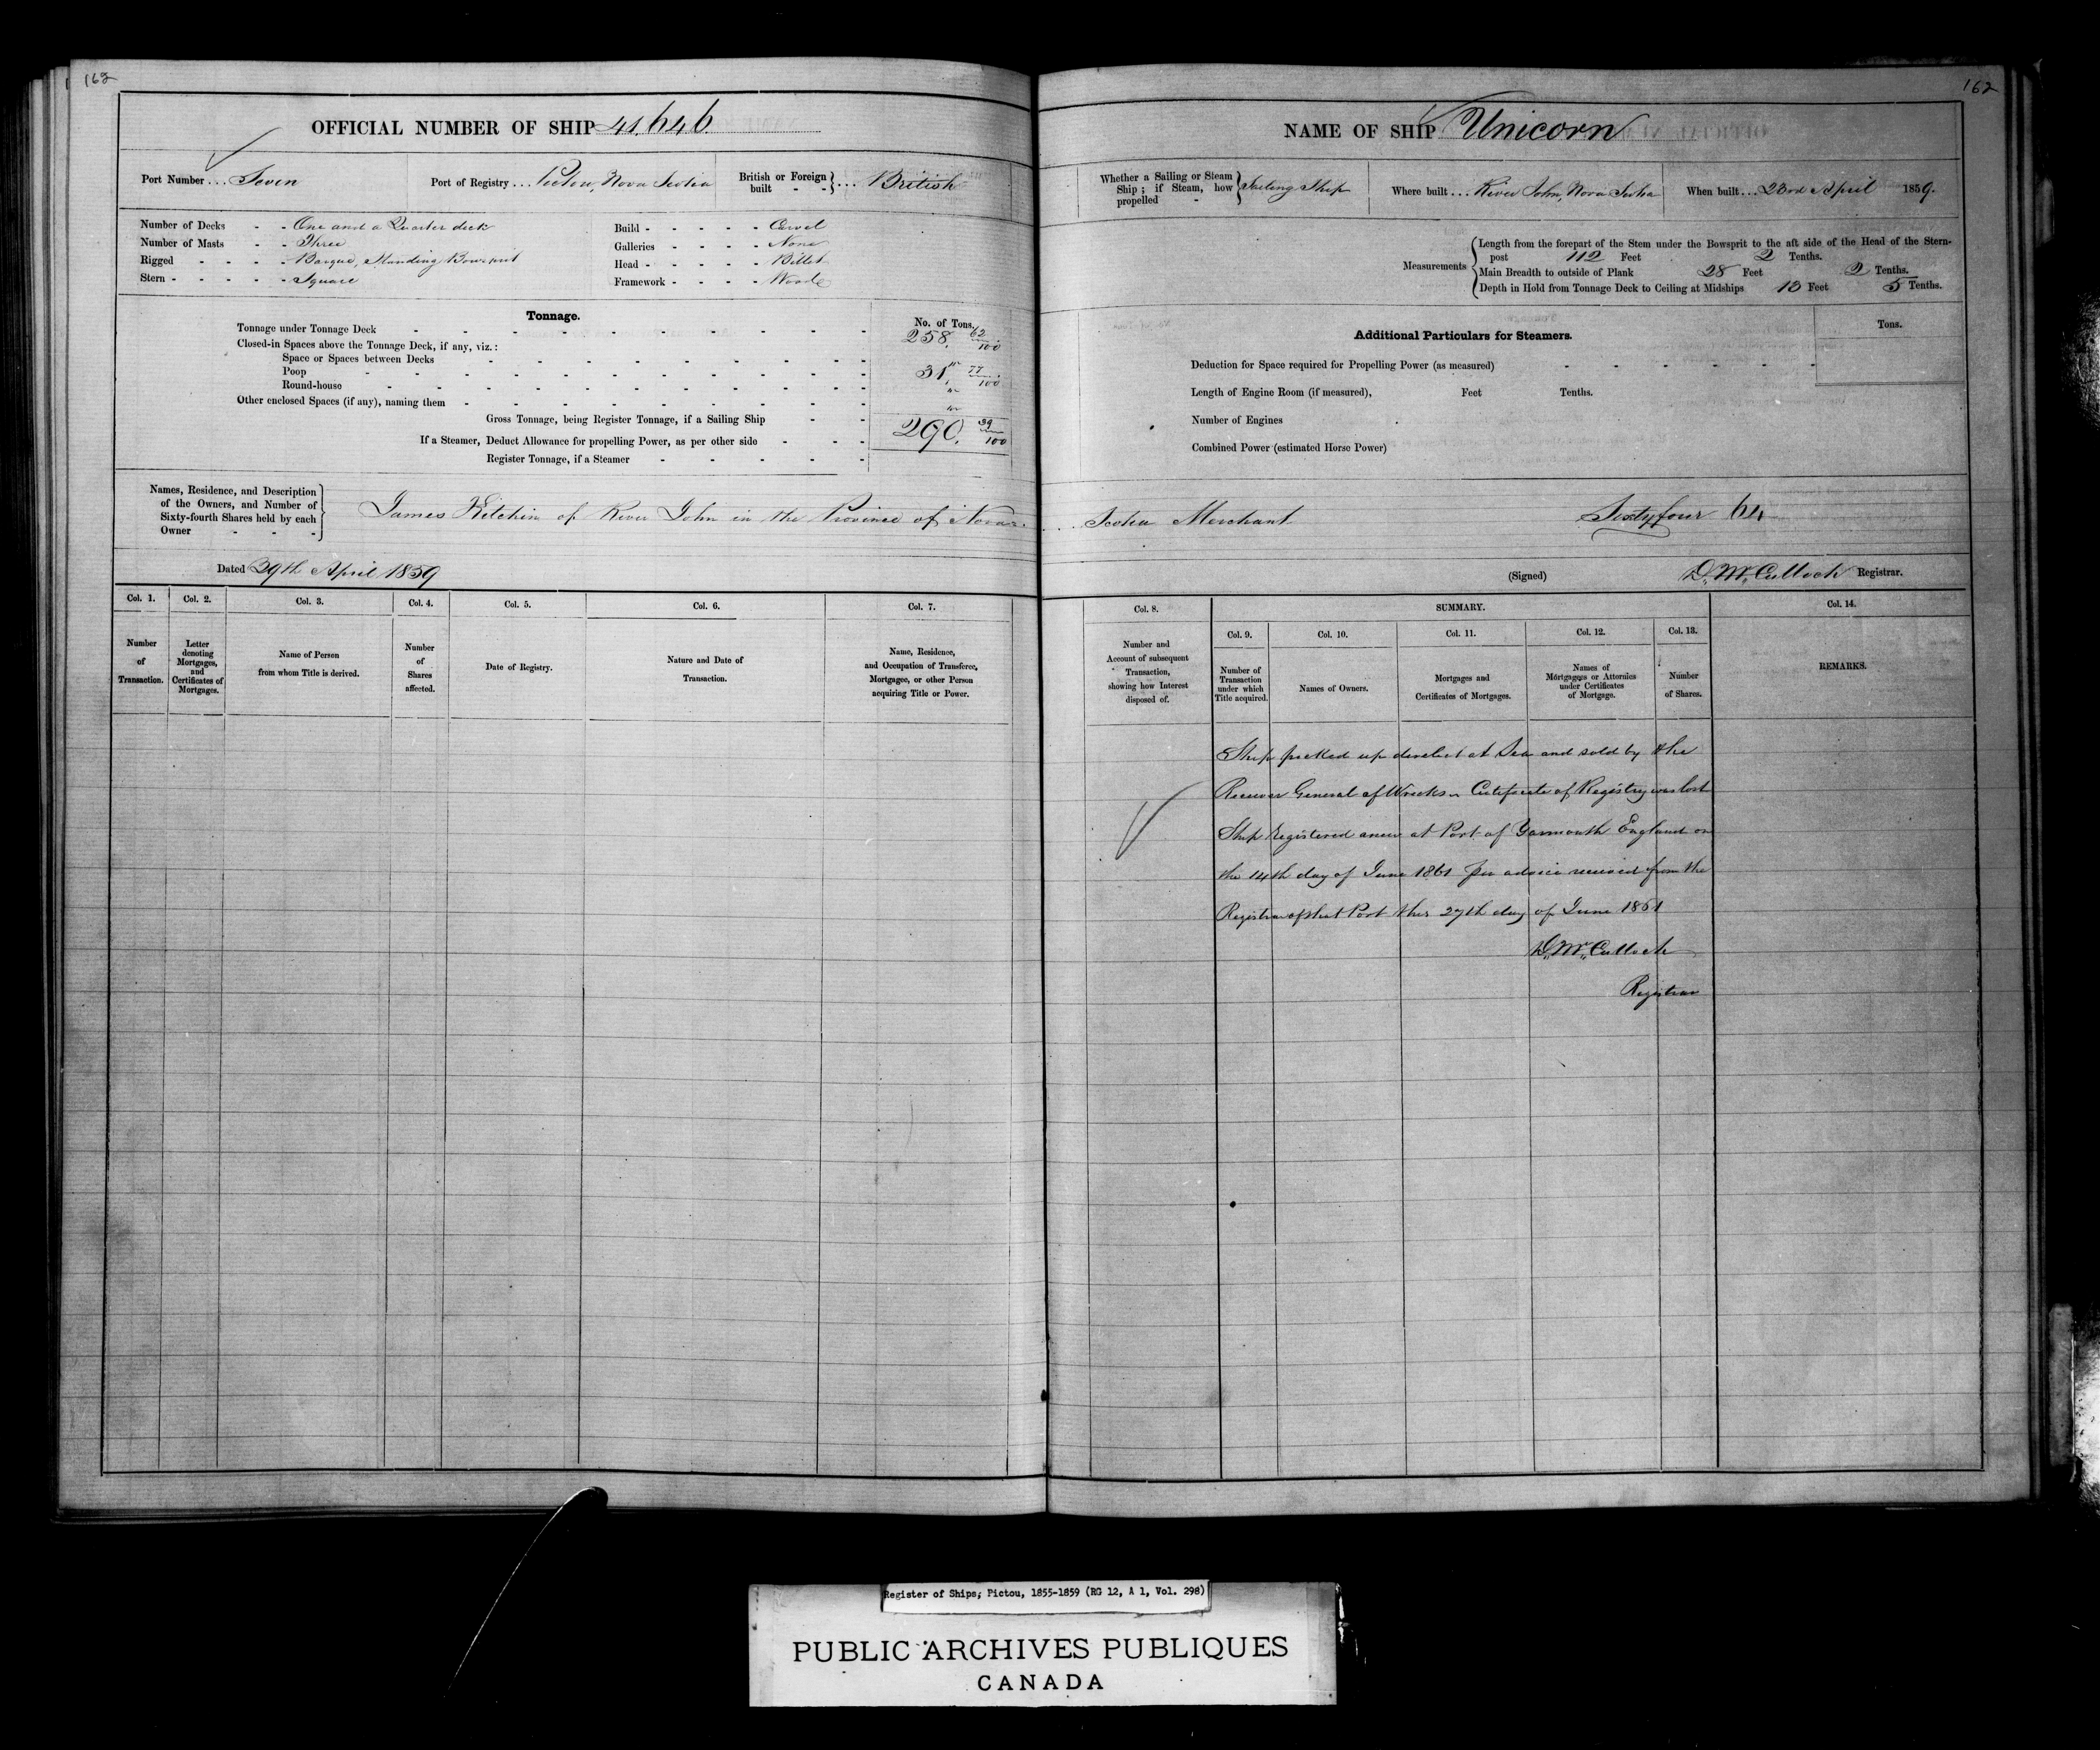 162
OFFICIAL NUMBER OF SHIP 41.646
Port Number ... Seven
Port of Registry ... Pictou, Nova Scotia
British or Foreign built - - } ... British
Number of Decks - - One and a Quarter deck
Number of Masts - - Three
Rigged - - - - Barque, Standing Bowsprit
Stern - - - - - Square
Build - - - - - Carvel
Galleries - - - - None
Head - - - - - Billet
Framework - - - - Wood
Tonnage.
No. of Tons.
Tonnage under Tonnage Deck 258. 62/100
Closed-in Spaces above the Tonnage Deck, if any, viz.:
Space or Spaces between Decks
Poop 31, 77/100
Round-house
Other enclosed Spaces (if any), naming them
Gross Tonnage, being Register Tonnage, if a Sailing Ship 290. 39/100
If a Steamer, Deduct Allowance for propelling Power, as per other side
Register Tonnage, if a Steamer
Names, Residence, and Description
of the Owners, and Number of
Sixty-fourth Shares held by each
Owner - - -
James Kitchin of River John in the Province of Nova
Dated 29th April 1859
Col. 1. Col. 2. Col. 3. Col. 4. Col. 5. Col. 6. Col. 7.
Number of Transaction.
Letter denoting Mortgages, and Certificates of Mortgages.
Name of Person from whom Title is derived.
Number of Shares affected.
Date of Registry.
Nature and Date of Transaction.
Name, Residence, and Occupation of Transferee, Mortgagee, or other Person acquiring Title or Power.
162
NAME OF SHIP Unicorn
Whether a Sailing or Steam Ship; if Steam, how propelled - } Sailing Ship
Where built ... River John, Nova Scotia
When built ... 23rd April 1859.
Measurements
Length from the forepart of the Stem under the Bowsprit to the aft side of the Head of the Stern-
post 112 Feet 2 Tenths.
Main Breadth to outside of Plank 28 Feet 2 Tenths.
Depth in Hold from Tonnage Deck to Ceiling at Midships 13 Feet 5 Tenths.
Additional Particulars for Steamers.
Tons.
Deduction for Space required for Propelling Power (as measured)
Length of Engine Room (if measured), Feet Tenths.
Number of Engines
Combined Power (estimated Horse Power)
Scotia Merchant Sixty four 64
(Signed) D. McCulloch Registrar.
Col. 8. SUMMARY. Col. 14.
Col. 9. Col. 10. Col. 11. Col. 12. Col. 13.
Number and Account of subsequent Transaction, showing how Interest disposed of.
Number of Transaction under which Title acquired.
Names of Owners.
Mortgages and Certificates of Mortgages.
Names of Mortgagees or Attornies under Certificates of Mortgage.
Number of Shares.
REMARKS.
Ship picked up derelict at Sea and sold by the
Receiver General of Wrecks - Certificate of Registry was lost
Ship Registered anew at Port of Yarmouth England on
the 14th day of June 1861 per advice received from the
Registrar of that Port this 27th day of June 1861
D. McCulloch
Registrar
Register of Ships; Pictou, 1855-1859 (RG 12, A 1, Vol. 298)
PUBLIC ARCHIVES PUBLIQUES
CANADA